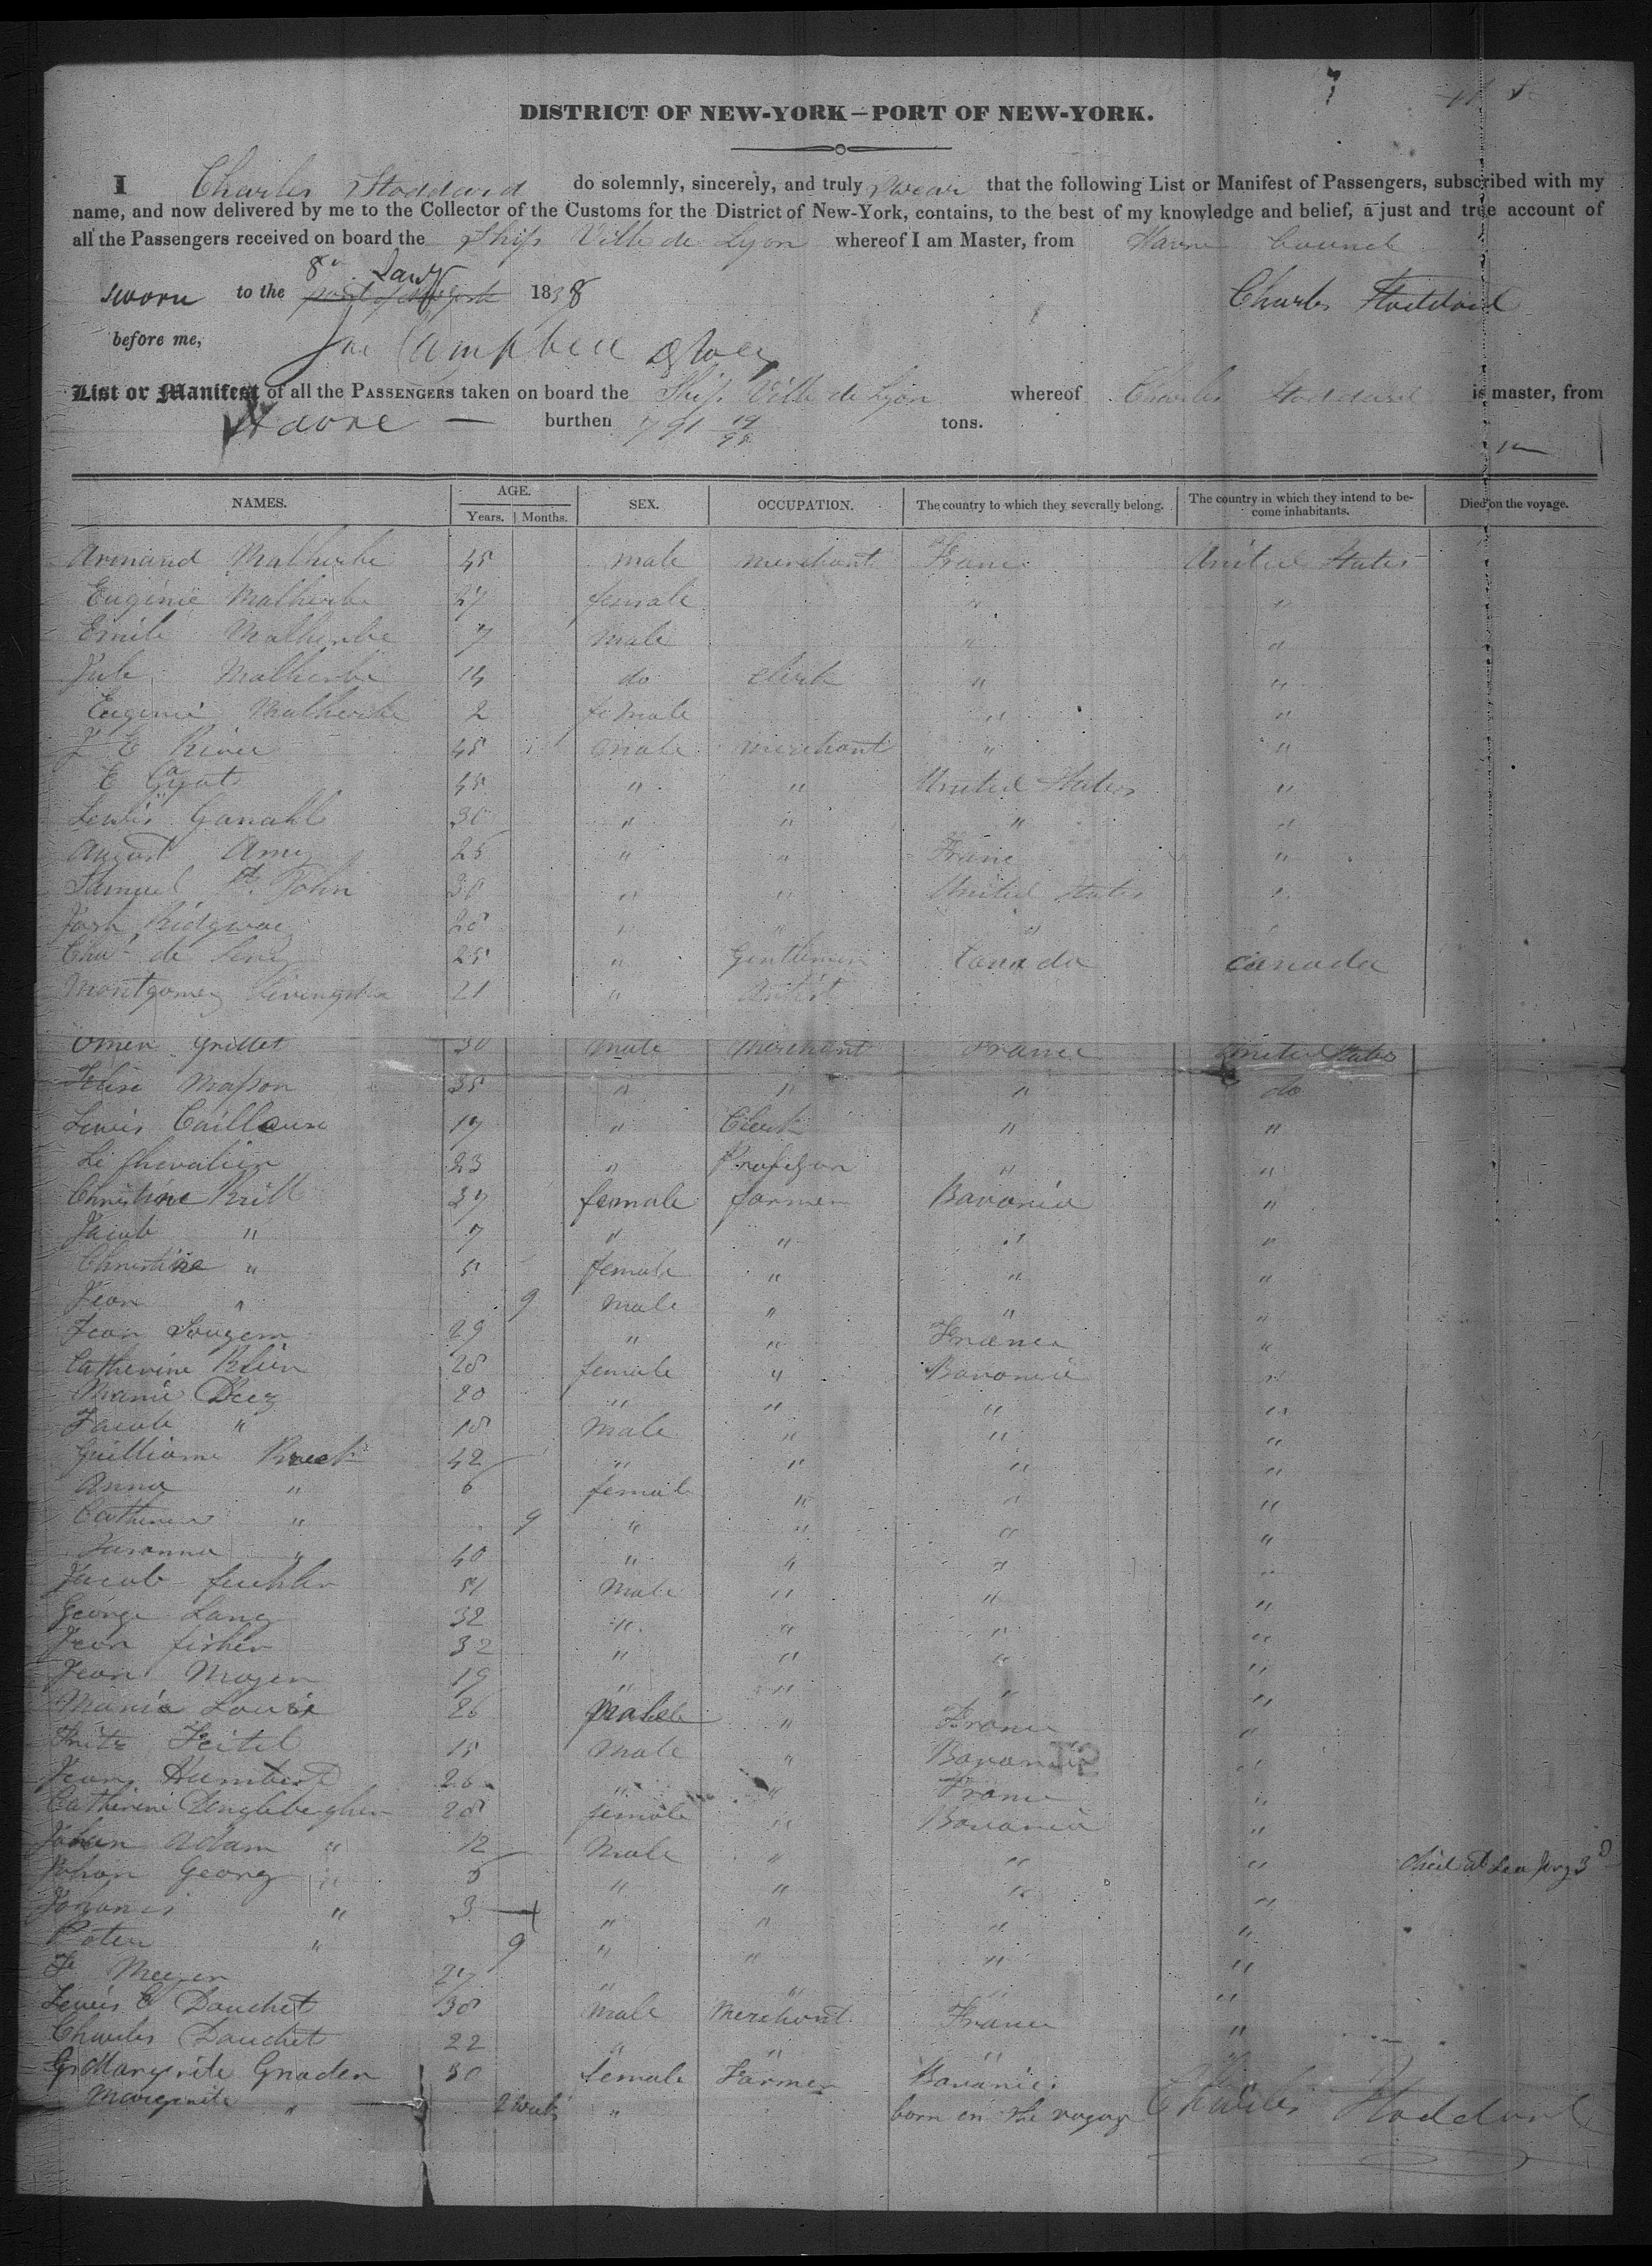 DISTRICT OF NEW-YORK—PORT OF NEW-YORK.
I Charles Stoddard do solemnly, sincerely, and truly swear that the following List or Manifest of Passengers, subscribed with my
name, and now delivered by me to the Collector of the Customs for the District of New-York, contains, to the best of my knowledge and belief, a just and true account of
all the Passengers received on board the Ship Ville de Lyon whereof I am Master, from Havre
sworn to the 8 Jany 1838 Charles Stoddard
before me,
Campbell
List or Manifest of all the PASSENGERS taken on board the Ship Ville de Lyon whereof Charles Stoddard is master, from
Havre — burthen 791 tons.
NAMES. AGE. SEX. OCCUPATION. The country to which they severally belong. The country in which they intend to be-come inhabitants. Died on the voyage.
Years. Months.
Armand Malherbe 45 male merchant France United States
Eugénie Malherbe 27 female " "
Emile Malherbe 7 male " "
Jule Malherbe 14 do clerk " "
Eugénie Malherbe 2 female " "
J E River 45 male merchant " "
E 45 " " United States "
Lewis Ganahl 30 " " " "
August Amy 25 " " France "
Samuel St. John 30 " " United States "
Ridgway 28 " " " "
Chas de Lery 25 " Gentlemen Canada Canada
Montgomery Livingston 21 " Artist
Omer Grillet 30 male Merchant France United States
Masson 35 " " " do
Lewis Cailleux 17 " Clerk " "
Le Chevalier 23 " Professor " "
Christine Brill 37 female farmer Bavaria "
Jacob " 7 " " " "
Christine " 5 female " " "
Jean " 9 male " " "
Jean 29 " " France "
Catherine Klein 28 female " Bavaria "
Marie Deez 20 " " " "
Jacob " 18 Male " " "
Guilliame 42 " " " "
Anna " 6 female " " "
Catherine " 9 " " " "
Susanna " 40 " " " "
Jacob 51 Male " " "
George Lang 32 " " " "
Jean fisher 32 " " " "
Jean Mayer 19 " " " "
Maria Louis 26 " France "
Fritz Feitel 15 Male " Bavaria "
Jean Humbert 26 " " France "
Catherine Dengleberghen 28 female " Bavaria "
Johan Adam " 12 Male " " "
Johan Georg " 5 " " " " died at Sea Jany 3d
Johanes " 3 " " " "
Peter " 9 " " " "
F Meyer 27 " " " "
Lewis C Douchet 38 male Merchant France "
Charles Douchet 22 " " " "
Margrite Gnaden 30 female Farmer Bavaria "
Margrite " 2 weeks " born on the voyage Charles Stoddard